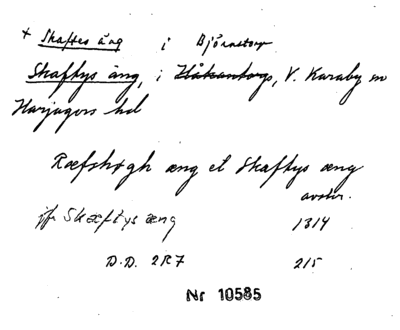 + Skaftes äng i Björnstorp
Skaftys äng, i Håkantorps, V. Karaby sn
Harjagers hd
Ræfshøgh æng et Skaftys æng
avskr.
jfr Skæftys æng 1314
D.D. 2R7 215
Nr 10585